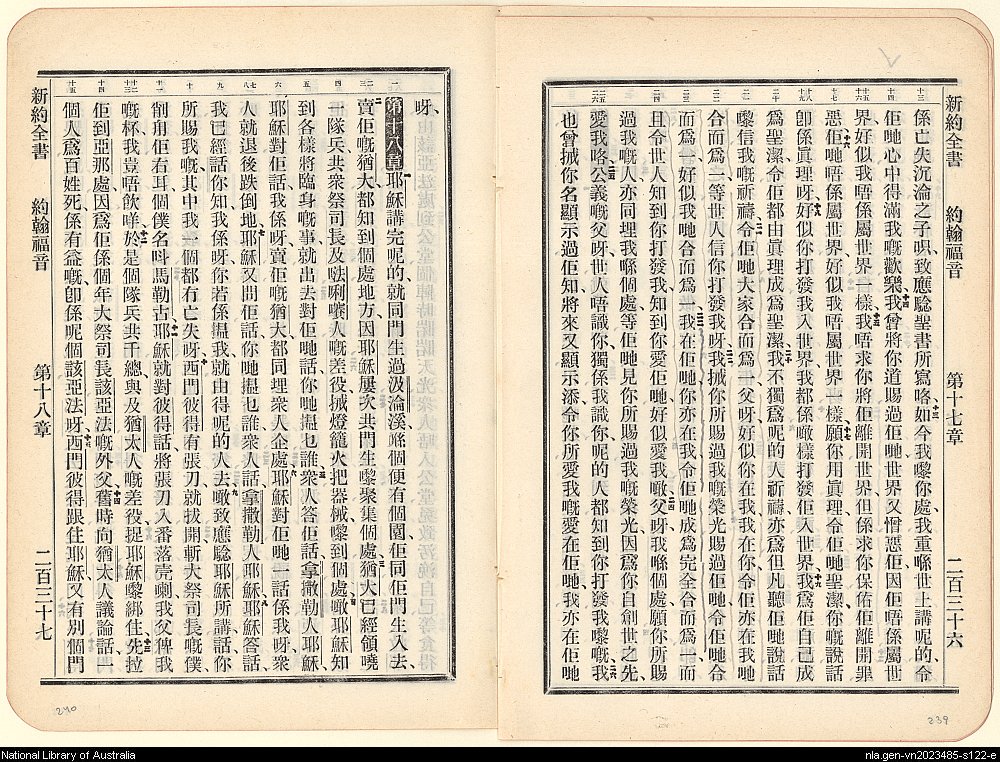 新約全書 約翰福音 第十七章 二百三十六
係亡失沉淪之子呮、致應騐聖書所寫咯、如今我嚟你處、我重喺世上講呢的、令
佢哋心中得滿我嘅歡樂、我曾將你道賜過佢哋、世界又憎惡佢、因佢唔係屬世
界、好似我唔係屬世界一樣、我唔求你將佢離開世界、但係求你保佑佢離開罪
惡、佢哋唔係屬世界、好似我唔屬世界一樣、願你用眞理令佢哋聖潔、你嘅說話
卽係眞理呀、好似你打發我入世界、我都係噉樣打發佢入世界、我爲佢自己成
爲聖潔、令佢都由眞理成爲聖潔、我不獨爲呢的人祈禱、亦爲佢但凡聽佢哋說話
嚟信我嘅祈禱、令佢哋大家合而爲一、父呀、好似你在我、我在你、令佢亦在我哋
合而爲一、等世人信你打發我呀、我搣你所賜過我嘅榮光、賜過佢哋、令佢哋合
而爲一、好似我哋合而爲一、我在佢哋、你亦在我、令佢哋成爲完全合而爲一、而
且令世人知到你打發我、知到你愛佢哋好似愛我噉、父呀、我喺個處、願你所賜
過我嘅人、亦同埋我喺個處、等佢哋見你所賜過我嘅榮光、因爲你自創世之先
愛我咯、公義嘅父呀、世人唔識你、獨係我識你、呢的人都知到你打發我嚟嘅、我
也曾搣你名顯示過佢知、將來又顯示添、令你所愛我嘅愛在佢哋、我亦在佢哋
239
呀、
第十八章 耶穌講完呢的、就同門生過汲淪溪、喺個便有個園、佢同佢門生入去、
賣佢嘅猶大、都知到個處地方、因耶穌屢次共門生嚟聚集個處、猶大已經領嘵
一隊兵、共衆祭司長、及𠵽唎㘔人嘅差役、搣燈籠火把器械、嚟到個處、噉耶穌知
到各樣將臨身嘅事、就出去對佢哋話、你哋搵乜誰、衆人答佢話、拿撒勒人耶穌、
耶穌對佢話、我係呀、賣佢嘅猶大、都同埋衆人企處、耶穌對佢哋一話係我呀、衆
人就退後跌倒地、耶穌又問佢話、你哋搵乜誰、衆人話、拿撒勒人耶穌、耶穌答話、
我已經話你知我係呀、你若係搵我、就由得呢的人去、噉致應騐耶穌所講話、你
所賜我嘅、其中我一個都冇亡失呀、西門彼得有張刀、就拔開斬大祭司長嘅僕、
削甪佢右耳、個僕名呌馬勒古、耶穌就對彼得話、將張刀入番落壳喇、我父俾我
嘅杯、我豈唔飲咩、於是個隊兵共千總、與及猶太人嘅差役、捉耶穌嚟綁住、先拉
佢到亞那處、因爲佢係個年大祭司長該亞法嘅外父、舊時向猶太人議論話、一
個人爲百姓死、係有益嘅、卽係呢個該亞法呀、西門彼得跟住耶穌、又有別個門
新約全書 約翰福音 第十八章 二百三十七
240
National Library of Australia
nla.gen-vn2023485-s122-e